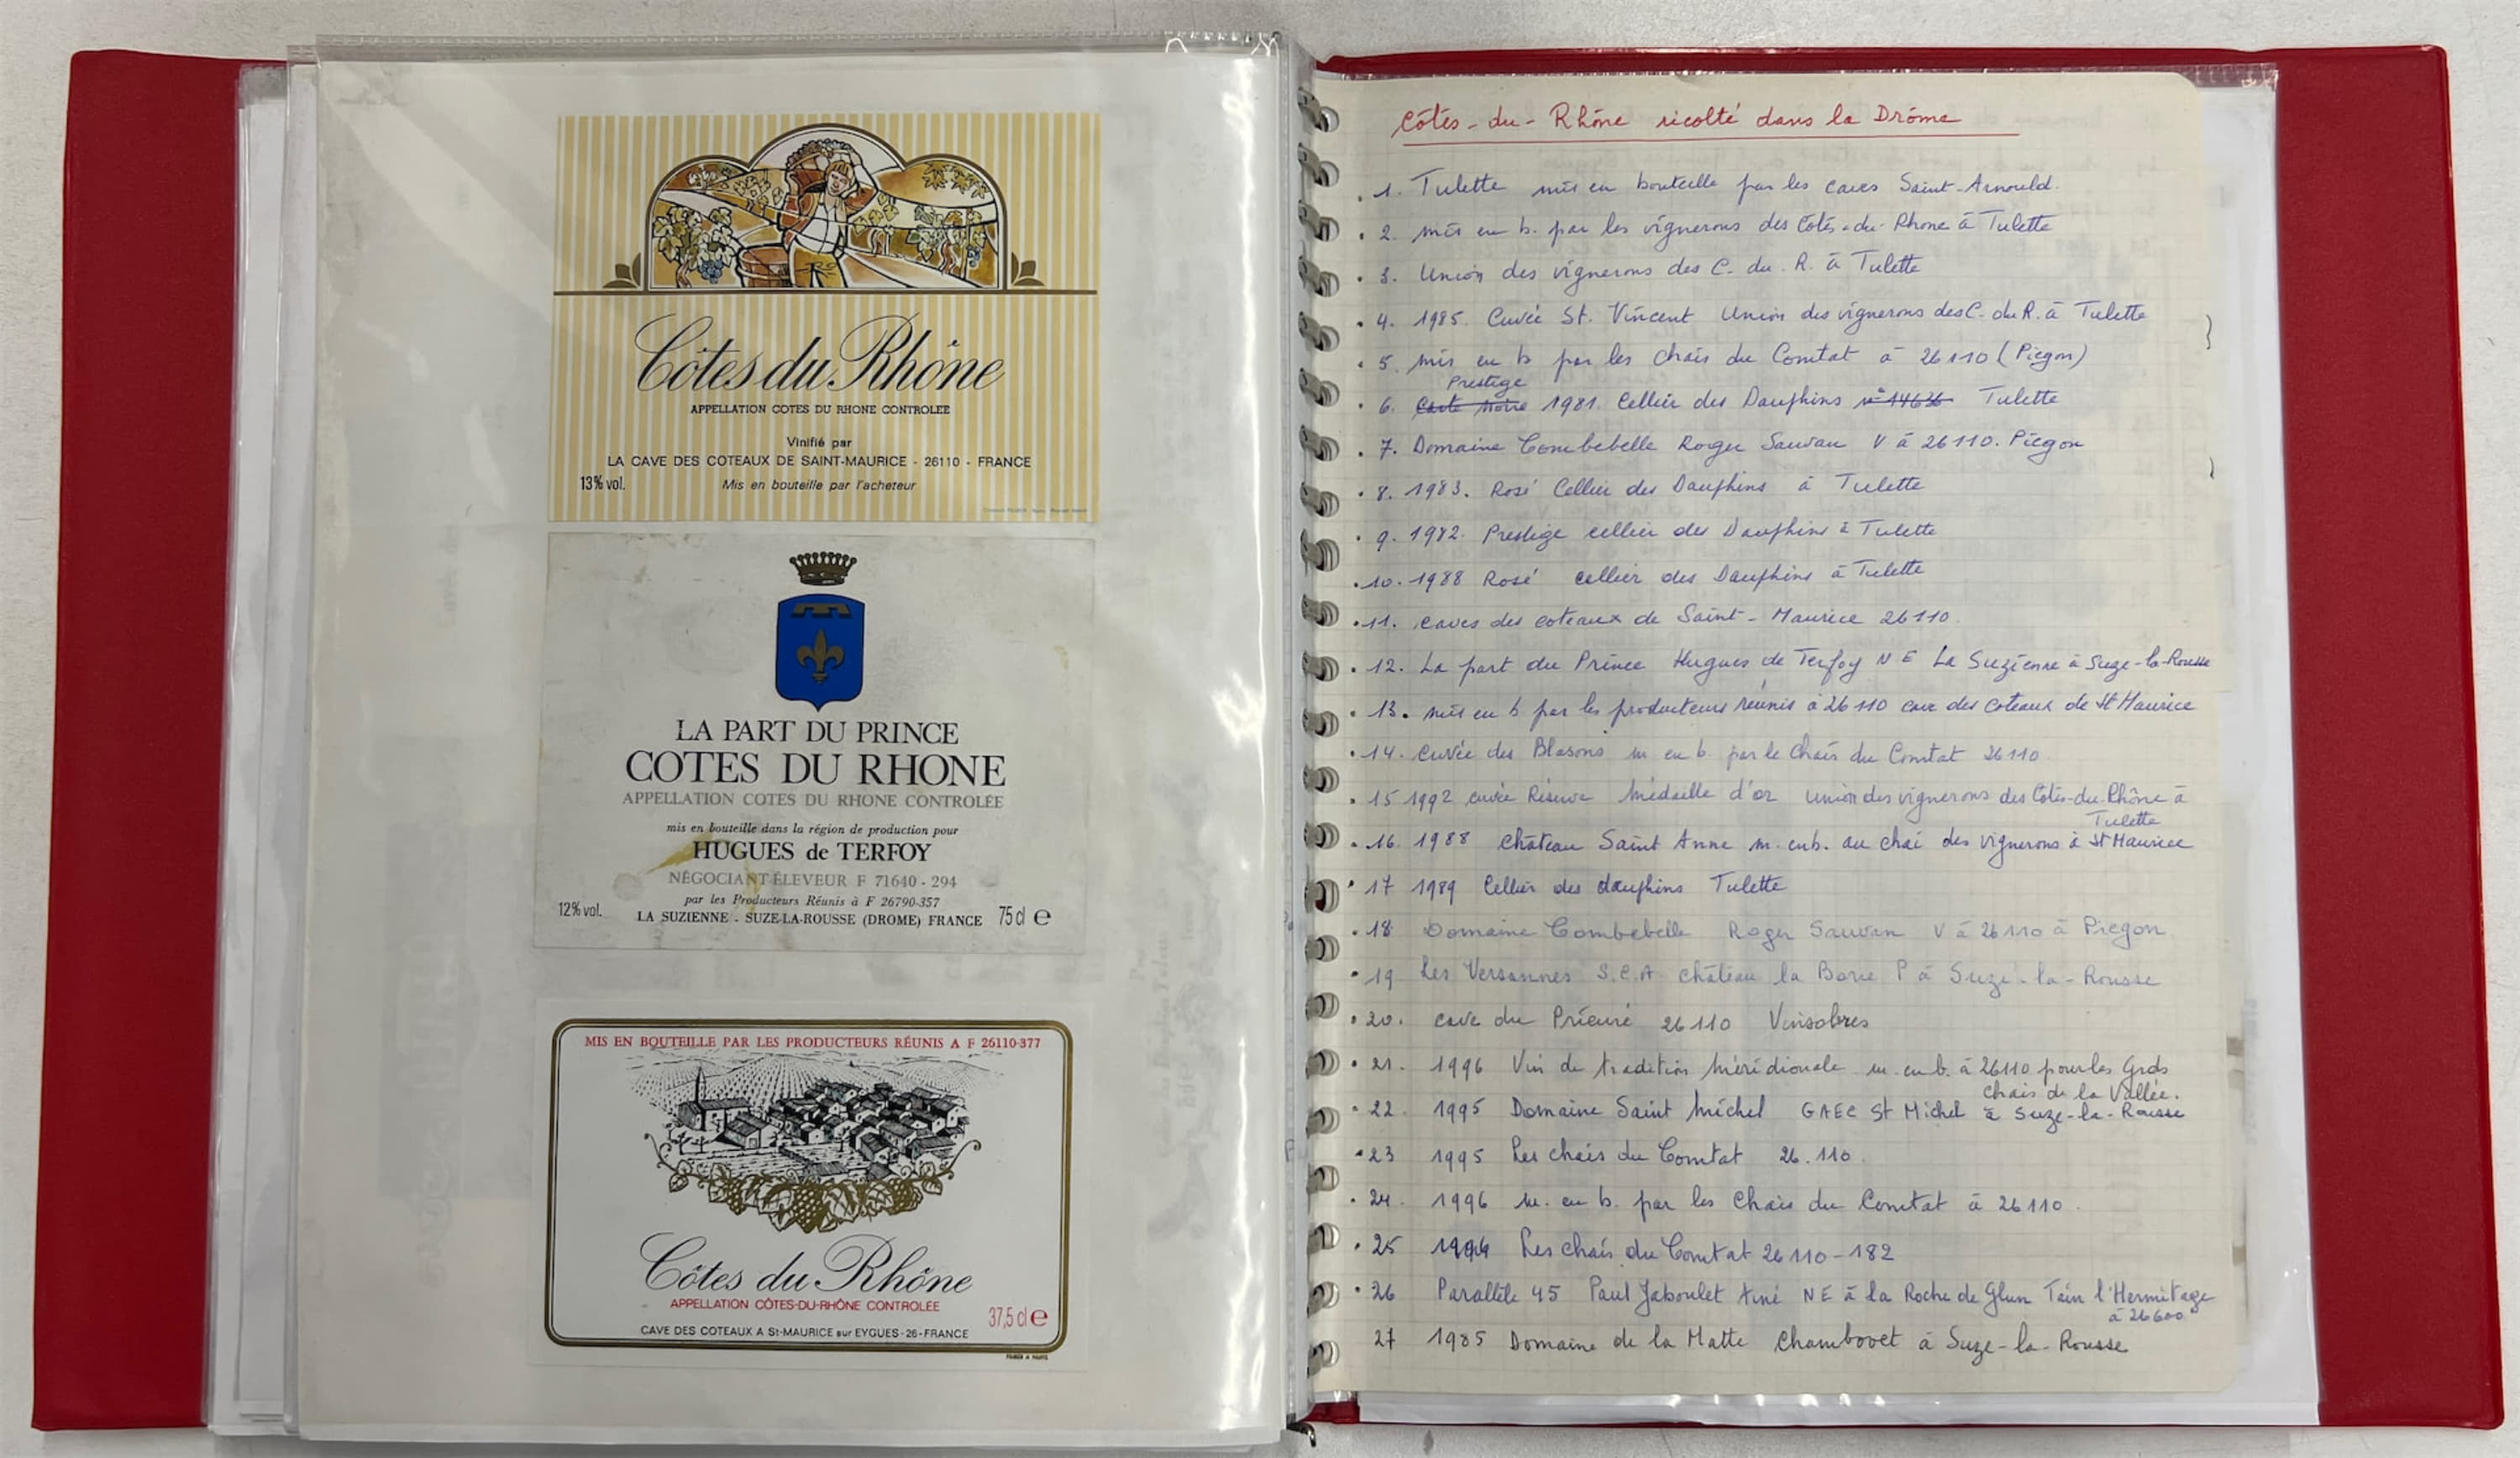 Côtes du Rhône
APPELLATION COTES DU RHONE CONTROLEE
Vinifié par
LA CAVE DES COTEAUX DE SAINT-MAURICE - 26110 - FRANCE
13% vol.
Mis en bouteille par l'acheteur
LA PART DU PRINCE
COTES DU RHONE
APPELLATION COTES DU RHONE CONTROLÉE
mis en bouteille dans la région de production pour
HUGUES de TERFOY
NÉGOCIANT-ÉLEVEUR F 71640 - 294
par les Producteurs Réunis à F 26790-357
12% vol.
LA SUZIENNE - SUZE-LA-ROUSSE (DROME) FRANCE
75 cl e
MIS EN BOUTEILLE PAR LES PRODUCTEURS RÉUNIS A F 26110-377
Côtes du Rhône
APPELLATION CÔTES-DU-RHÔNE CONTROLÉE
37,5 cl e
CAVE DES COTEAUX A St-MAURICE sur EYGUES-26-FRANCE
Côtes-du-Rhône ricolté dans la Drôme
1. Tulette mis en bouteille par les caves Saint-Arnould.
2. mis en b. par les vignerons des Côtes-du-Rhone à Tulette
3. Union des vignerons des C. du. R. à Tulette
4. 1985. Cuvée St. Vincent Union des vignerons des C. du R. à Tulette
5. mis en b par les chais du Comtat à 26110 (Piégon)
Prestige
6. Carte Noire 1981. Cellier des Dauphins n° 14626 Tulette
7. Domaine Combebelle Roger Sauvan V à 26110. Piégon
8. 1983. Rosé Cellier des Dauphins à Tulette
9. 1982. Prestige cellier des Dauphins à Tulette
10. 1988 Rosé cellier des Dauphins à Tulette
11. caves des coteaux de Saint-Maurice 26110.
12. La part du Prince Hugues de Terfoy N E La Suzienne à Suze-la-Rousse
13. mis en b par les producteurs réunis à 26110 cave des coteaux de St Maurice
14. cuvée des Blasons m en b. par le Chais du Comtat 26110.
15 1992 cuvée Réserve médaille d'or Union des vignerons des Côtes-du-Rhône à
Tulette
16. 1988 Château Saint Anne m. en b. au chai des vignerons à St Maurice
17 1989 Cellier des dauphins Tulette
18 Domaine Combebelle Roger Sauvan V à 26110 à Piegon
19 Les Versannes S.C.A château la Borie P à Suze-la-Rousse
20. cave du Prieuré 26110 Vinsobres
21. 1996 Vin de tradition méridionale m. en b. à 26110 pour les Grds
chais de la Vallée.
22. 1995 Domaine Saint Michel GAEC St Michel à Suze-la-Rousse
23 1995 Les chais du Comtat 26.110.
24. 1996 m. en b. par les Chais du Comtat à 26110.
25 1996 Les chais du Comtat 26110-182
26 Parallèle 45 Paul Jaboulet Ainé NE à la Roche de Glun Tain l'Hermitage
à 26600
27 1985 Domaine de la Matte Chambovet à Suze-la-Rousse